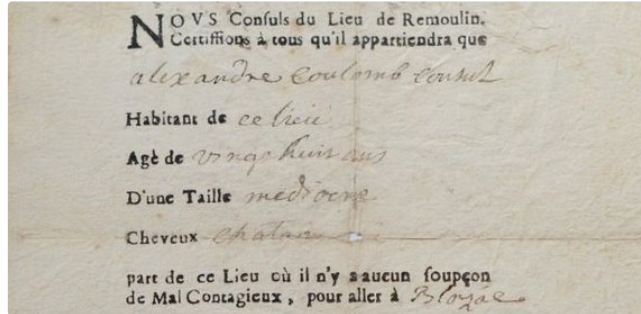 NOVS Consuls du Lieu de Remoulin,
Certiffions à tous qu'il appartiendra que
alexandre Coulomb Consul
Habitant de ce lieu
Agè de vingt huit ans
D'une Taille mediocre
Cheveux chatain
part de ce Lieu où il n'y a aucun soupçon
de Mal Contagieux, pour aller à Blozac